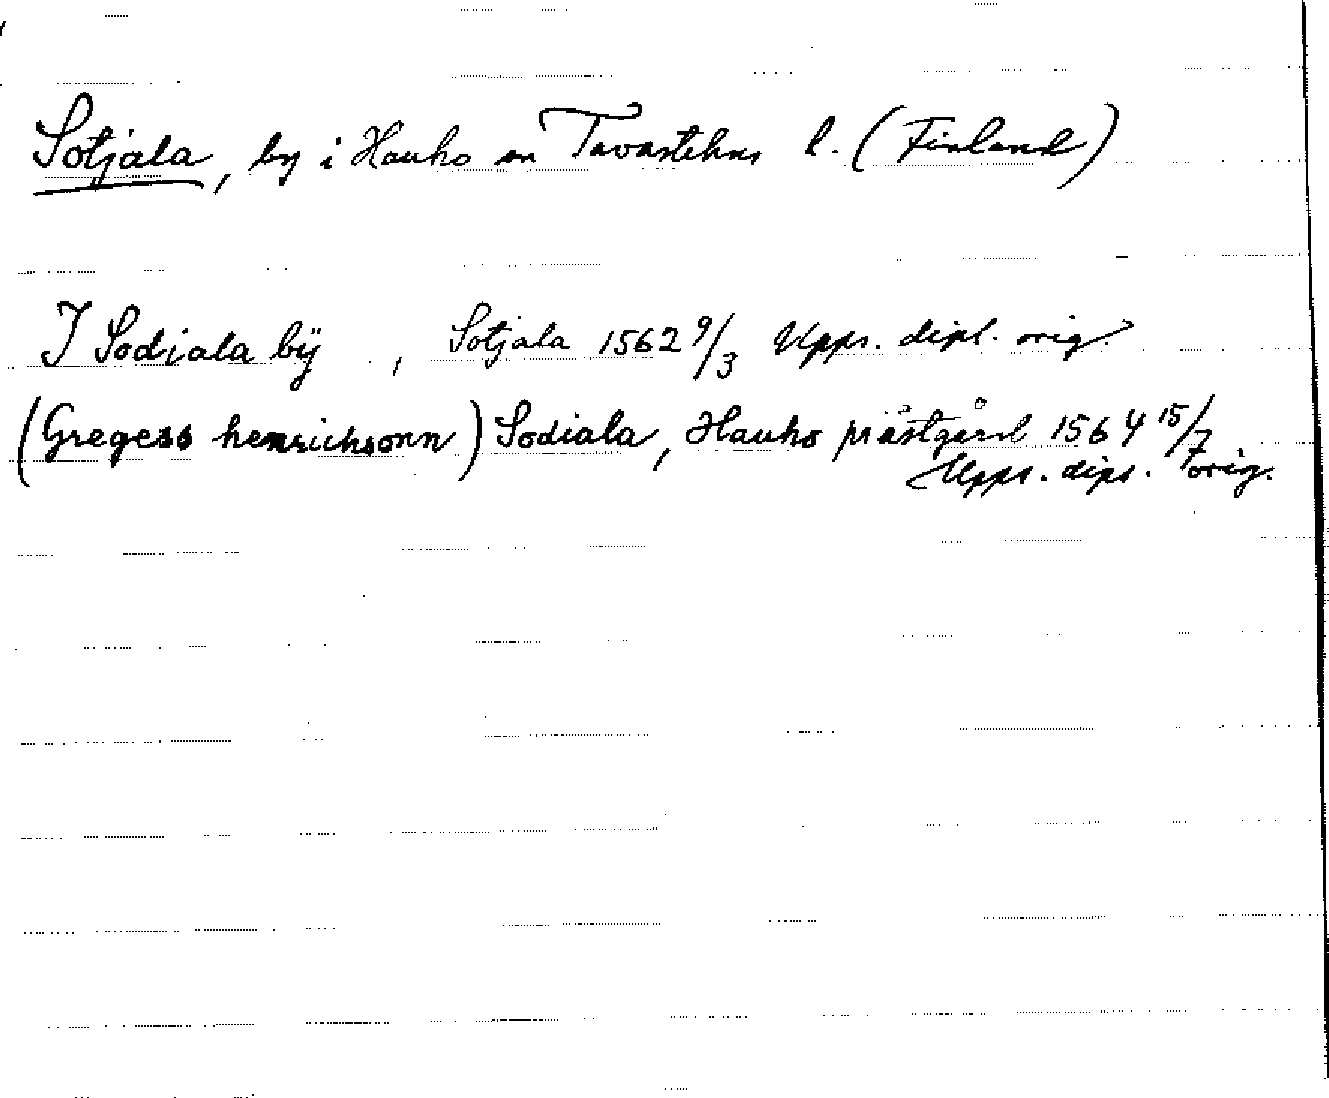 Sotjala, by i Hauho sn Tavastehus l. (Finland)
J Sodiala bÿ , Sotjala 1562 9/3 Upps. dipl. orig.
(Gregess henrichsonn) Sodiala, Hauho prästgård 1564 15/7
Upps. dipl. orig.